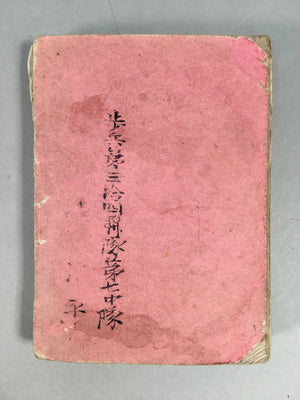 歩兵第三拾四聯隊第七中隊
永